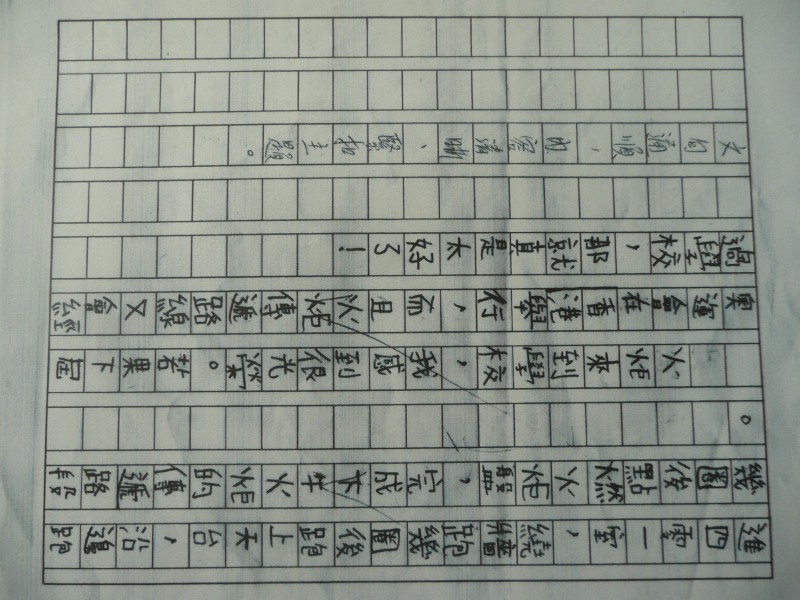 進四零一室，繞牆跑幾圈後跑上天台，沿邊跑
幾圈後點燃火炬盤，完成本火炬的傳遞路段
。
火炬來到學校，我感到很光榮。若果下屆
奧運會在香港舉行，而且火炬傳遞路線又會經
過學校，那就真是太好了！
文句通順，內容清晰、緊扣主題。